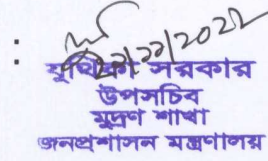 :
:
যূথিকা সরকার
উপসচিব
মুদ্রণ শাখা
জনপ্রশাসন মন্ত্রণালয়